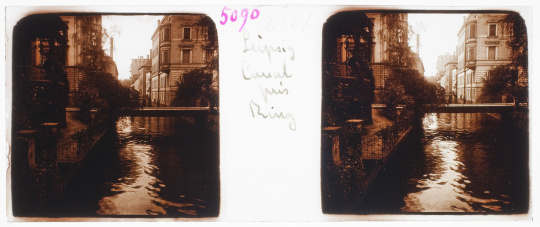 5090
Leipzig
Canal
près
Ring